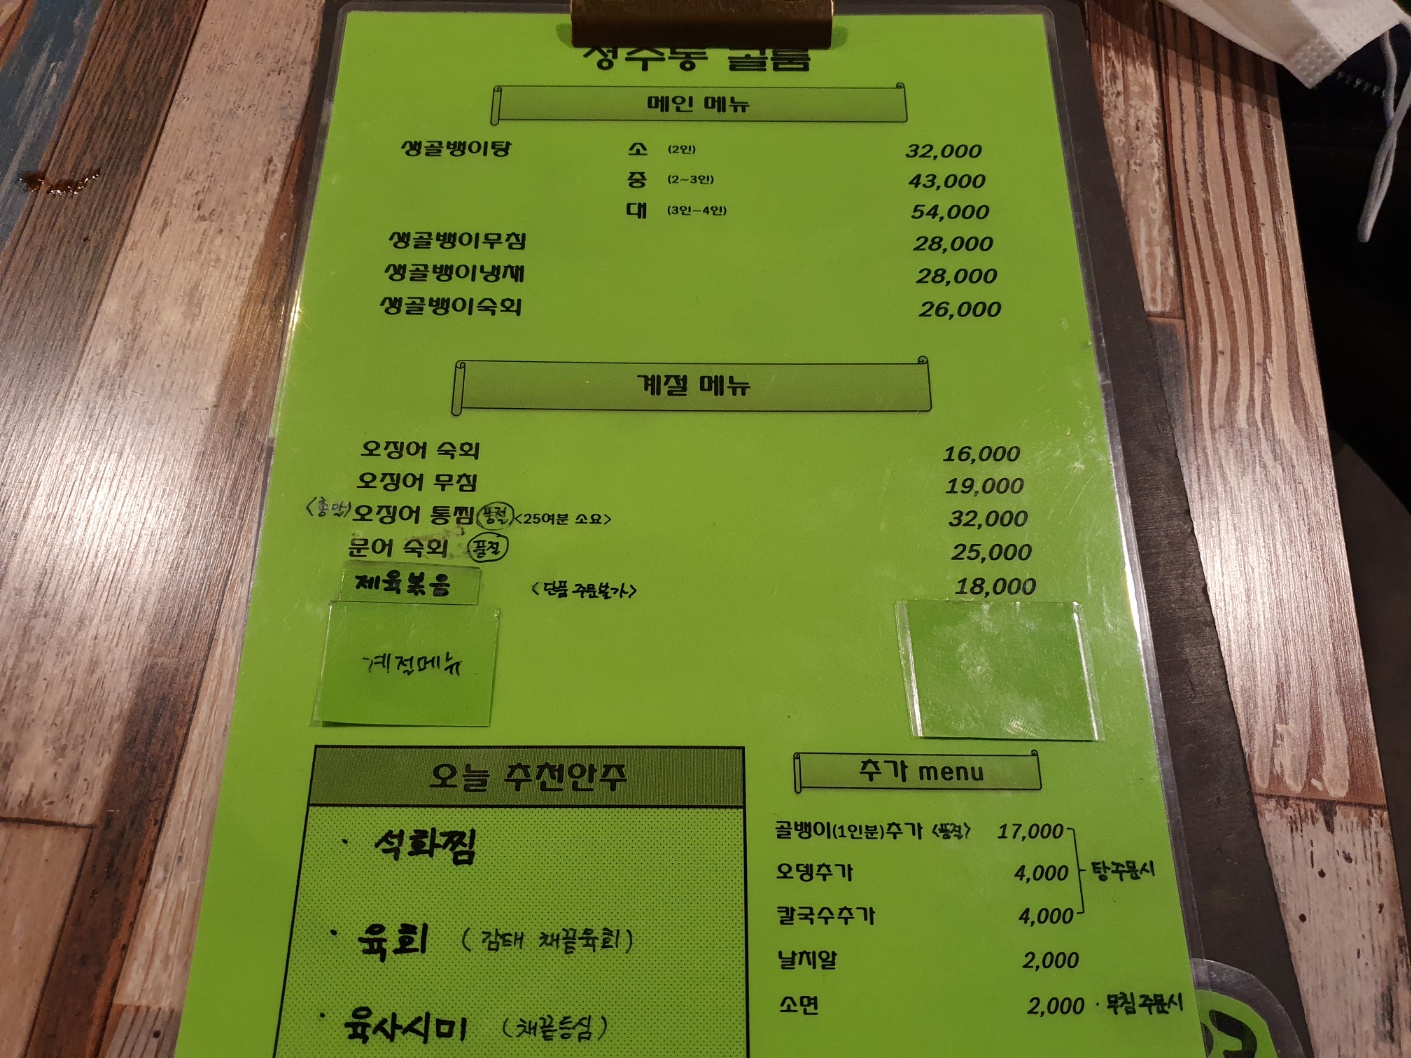 성수동 골뱅
메인 메뉴
생골뱅이탕 소 (2인) 32,000
중 (2~3인) 43,000
대 (3인~4인) 54,000
생골뱅이무침 28,000
생골뱅이냉채 28,000
생골뱅이숙회 26,000
계절 메뉴
오징어 숙회 16,000
오징어 무침 19,000
오징어 통찜 품절 <25여분 소요> 32,000
문어 숙회 품절 25,000
제육볶음 <단품 주문불가> 18,000
계절메뉴
오늘 추천안주
· 석화찜
· 육회 (감태 채끝육회)
· 육사시미 (채끝등심)
추가 menu
골뱅이(1인분)추가 <품절> 17,000
오뎅추가 4,000 탕주문시
칼국수추가 4,000
날치알 2,000
소면 2,000 · 무침 주문시